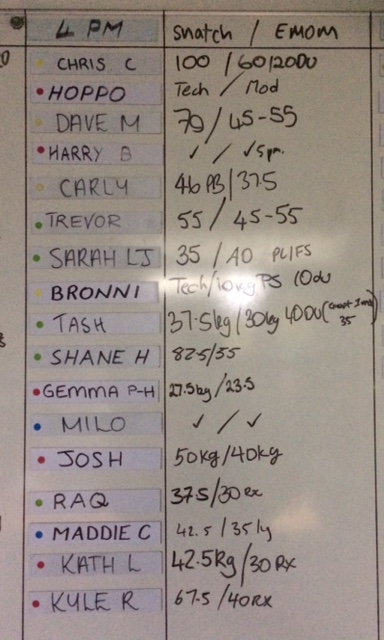 4 PM Snatch / EMOM
CHRIS C 100 / 60/20DU
HOPPO Tech / Mod
DAVE M 70 / 45-55
HARRY B ✓ / ✓ 5pm.
CARLY 46 PB / 37.5
TREVOR 55 / 45-55
SARAH LJ 35 / 40 PL/FS
BRONNI Tech/10kg PS 10du
TASH 37.5kg / 30kg 40DU (
35
SHANE H 82.5/55
GEMMA P-H 27.5kg/23.5
MILO ✓ / ✓
JOSH 50kg/40kg
RAQ 37.5/30 rx
MADDIE C 42.5 / 35kg
KATH L 42.5kg/30 Rx
KYLE R 67.5 / 40RX